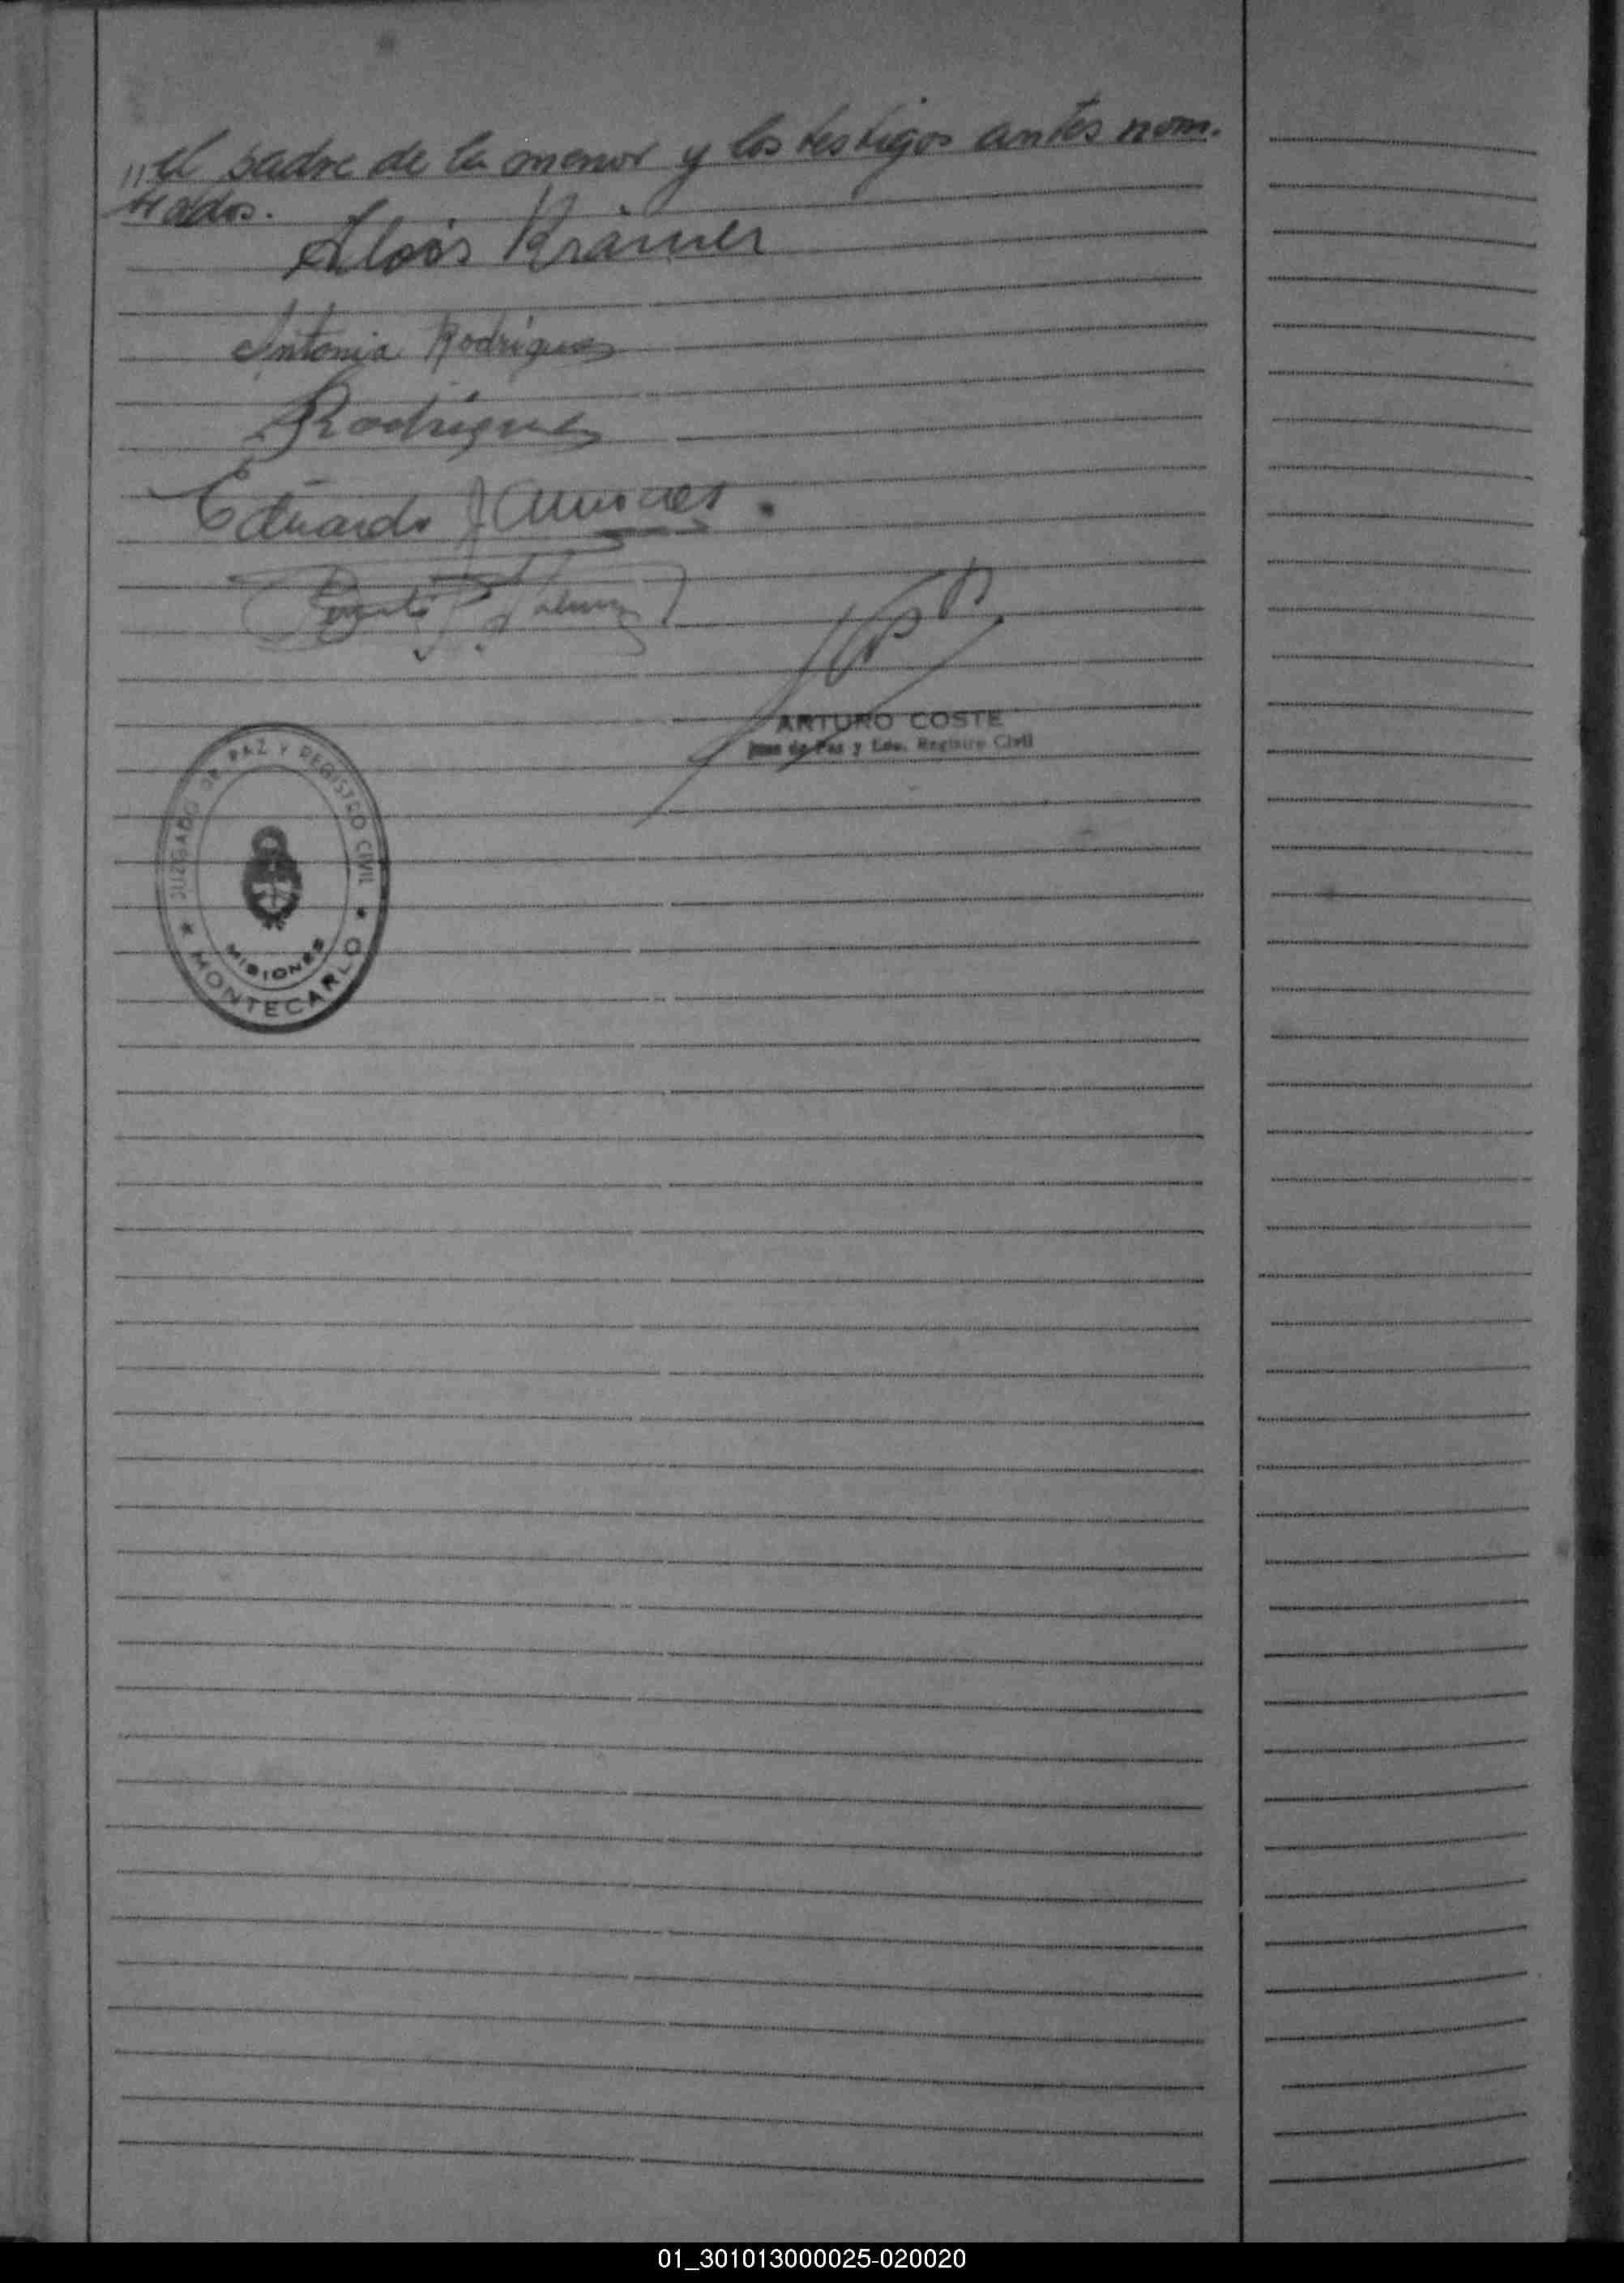 "el padre de la menor y los testigos antes nom-
brados.
Alois Krämer
Antonia Rodriguez
Rodriguez
Eduardo
ARTURO COSTE
Juez de Paz y Edo. Registro Civil
JUZGADO DE PAZ Y REGISTRO CIVIL
MISIONES
★ MONTECARLO ★
01_301013000025-020020